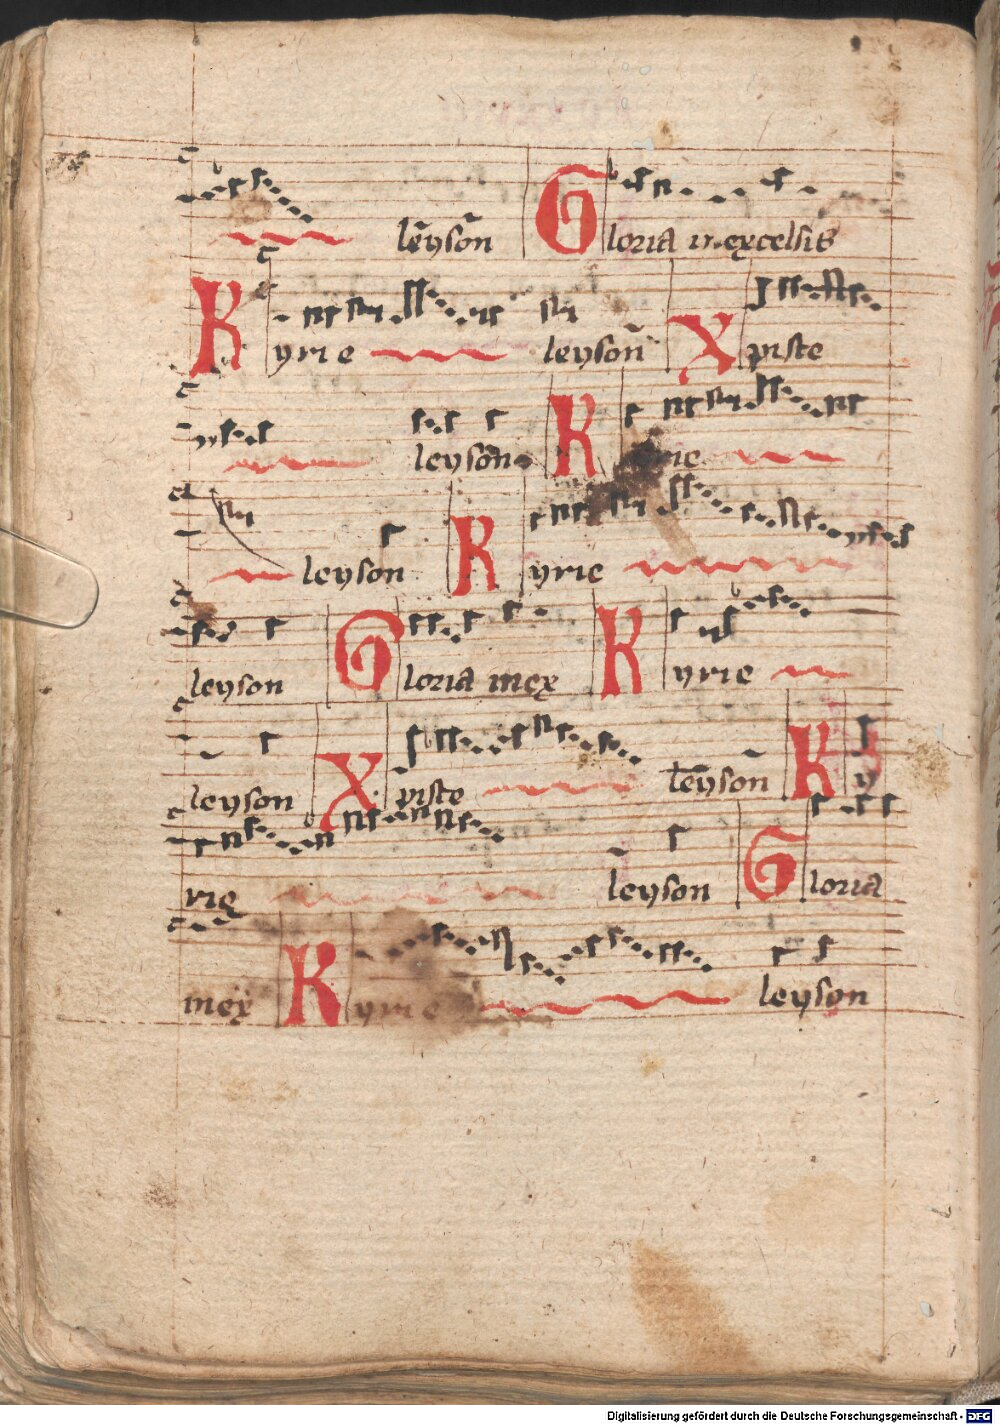 leyson Gloria in excelsis
Kyrie leyson Xpiste
leyson Kyrie
leyson Kyrie
leyson Gloria inex Kyrie
leyson Xpiste leyson Ky
rie leyson Gloria
inex Kyrie leyson
Digitalisierung gefördert durch die Deutsche Forschungsgemeinschaft - DFG